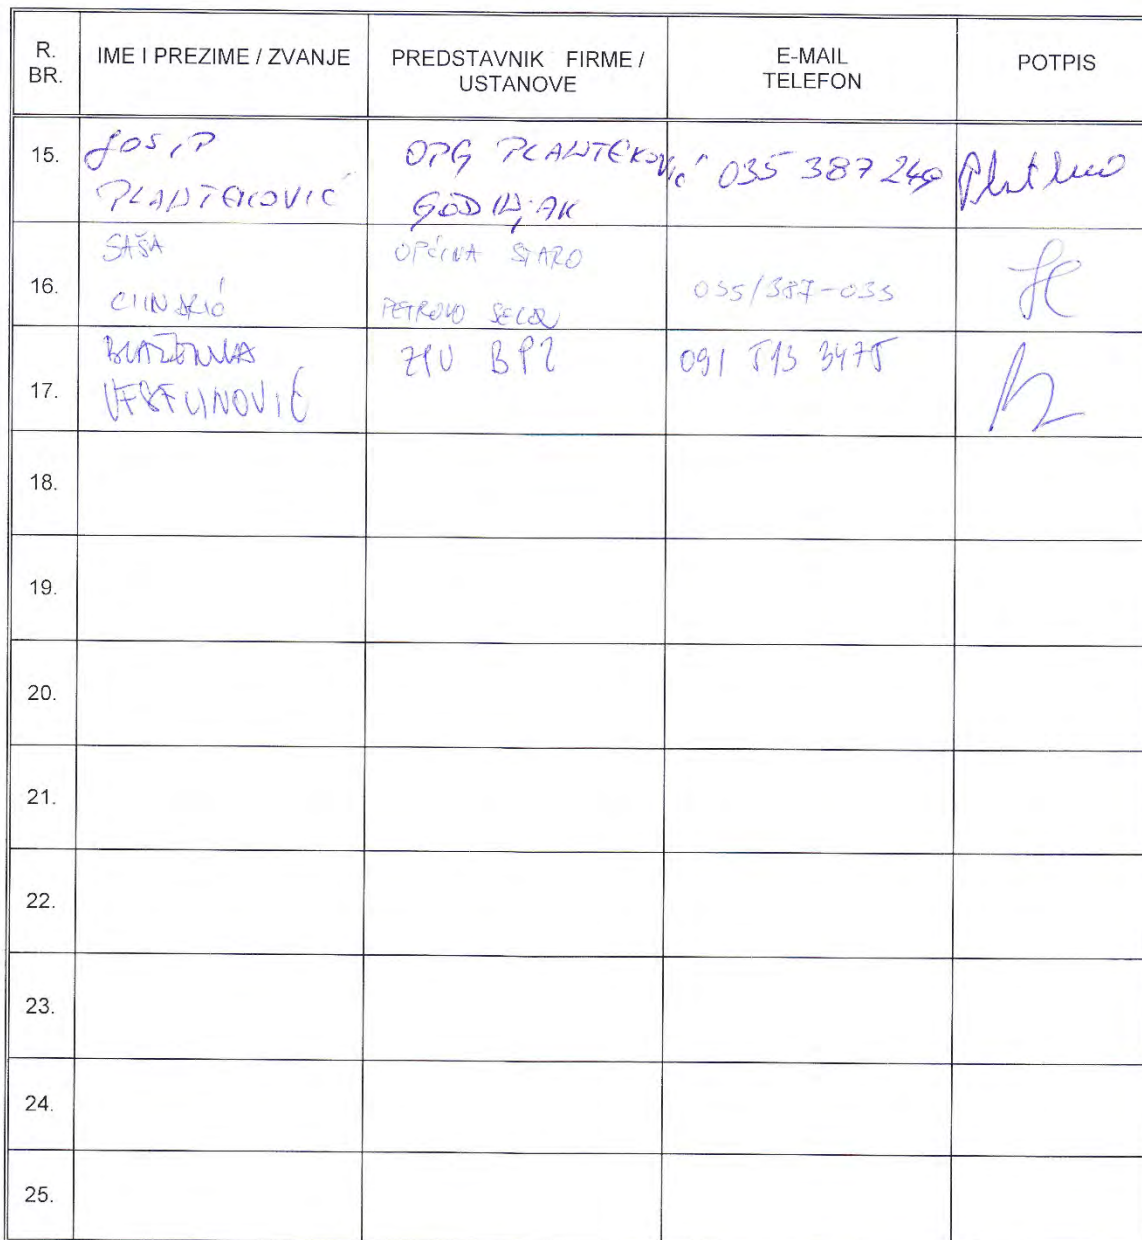 R. BR.
IME I PREZIME / ZVANJE
PREDSTAVNIK FIRME / USTANOVE
E-MAIL TELEFON
POTPIS
15.
JOSIP
PLANTEKOVIĆ
OPG PLANTEKOVIĆ
GODINJAK
035 387 249
16.
SAŠA
OPĆINA STARO
PETROVO SELO
035/387-035
17.
BLAŽENKA
VESELINOVIĆ
ZPU BPŽ
091 513 3475
18.
19.
20.
21.
22.
23.
24.
25.